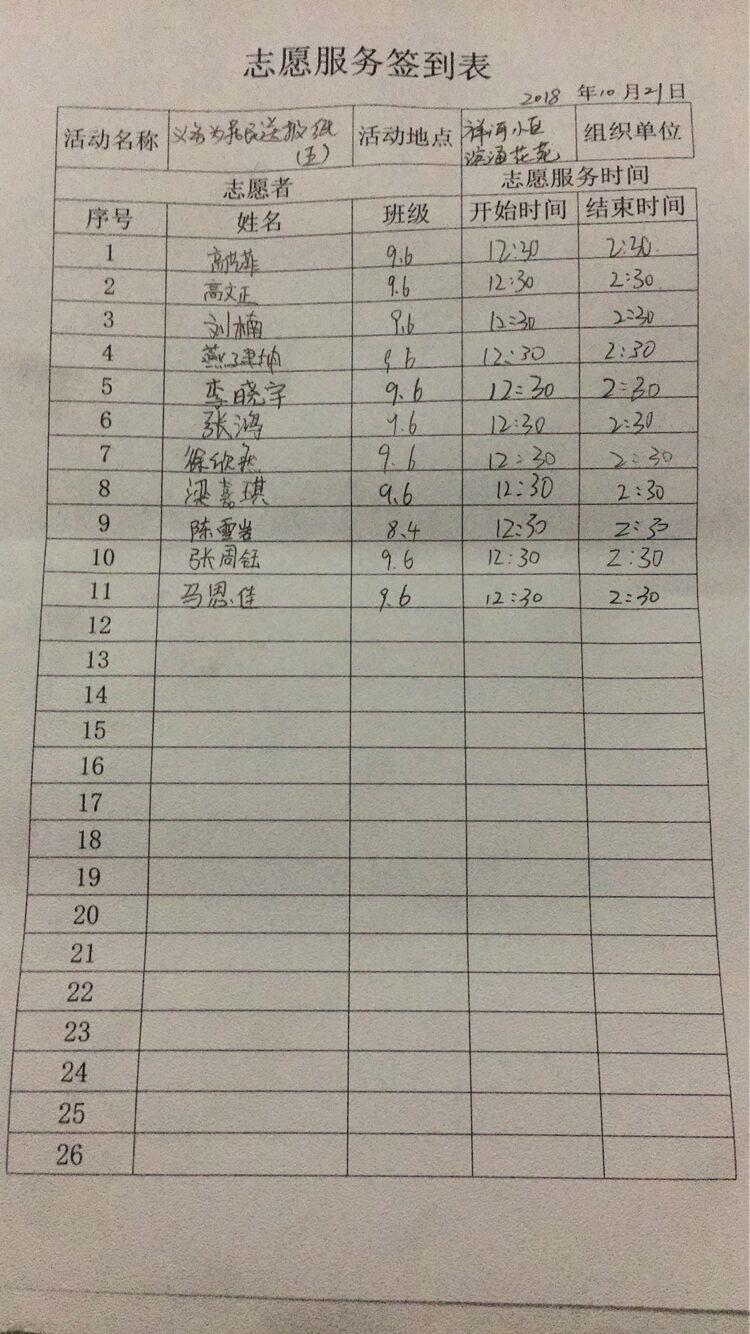 志愿服务签到表
2018 年10月21日
活动名称 义务为居民送报纸 (五) 活动地点 祥河小区 滨海花苑 组织单位
志愿者 志愿服务时间
序号 姓名 班级 开始时间 结束时间
1 9.6 12:30 2:30
2 高文正 9.6 12:30 2:30
3 刘楠 9.6 12:30 2:30
4 9.6 12:30 2:30
5 李晓宇 9.6 12:30 2:30
6 张鸿 9.6 12:30 2:30
7 徐欣然 9.6 12:30 2:30
8 梁嘉琪 9.6 12:30 2:30
9 陈雪岩 8.4 12:30 2:30
10 张周钰 9.6 12:30 2:30
11 马恩佳 9.6 12:30 2:30
12
13
14
15
16
17
18
19
20
21
22
23
24
25
26